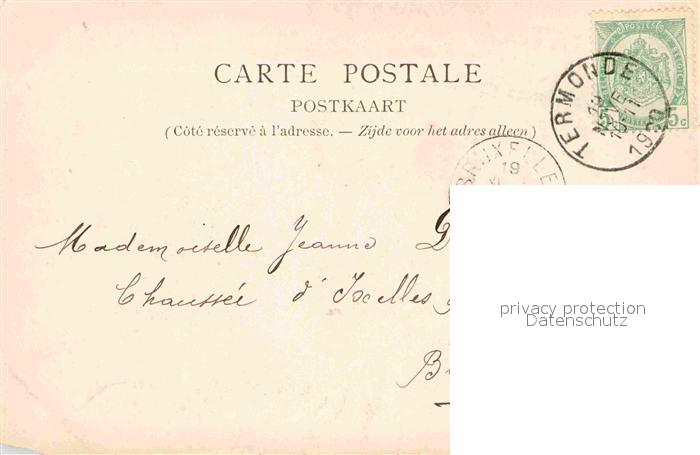 CARTE POSTALE
POSTKAART
(Côté réservé à l'adresse. — Zijde voor het adres alleen)
POSTES
5 5c
TERMONDE
1900
BRUXELLE
19
Mademoiselle Jeanne D
Chaussée d'Ixelles
B
privacy protection
Datenschutz